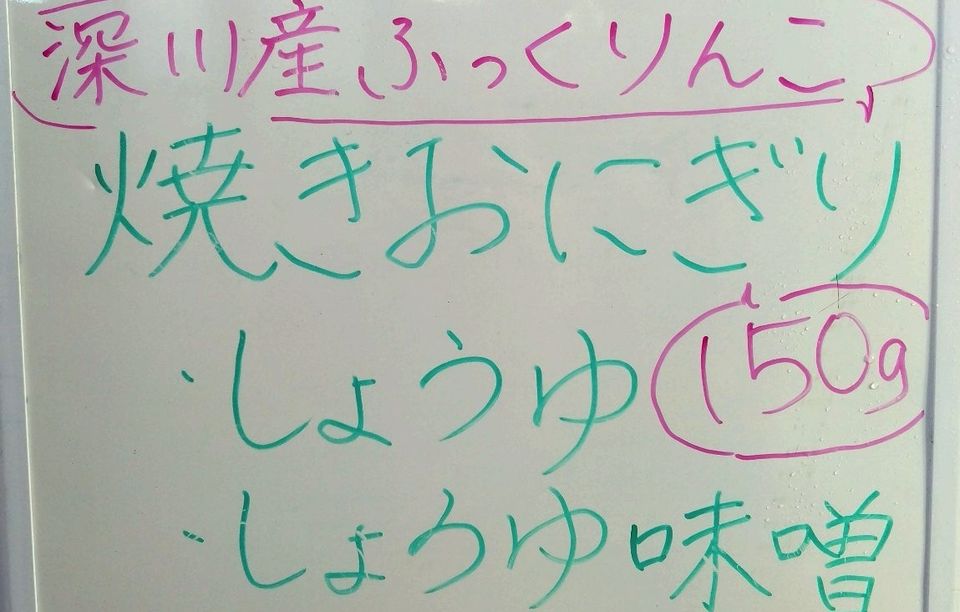 深川産ふっくりんこ
焼きおにぎり
・しょうゆ 150g
・しょうゆ味噌